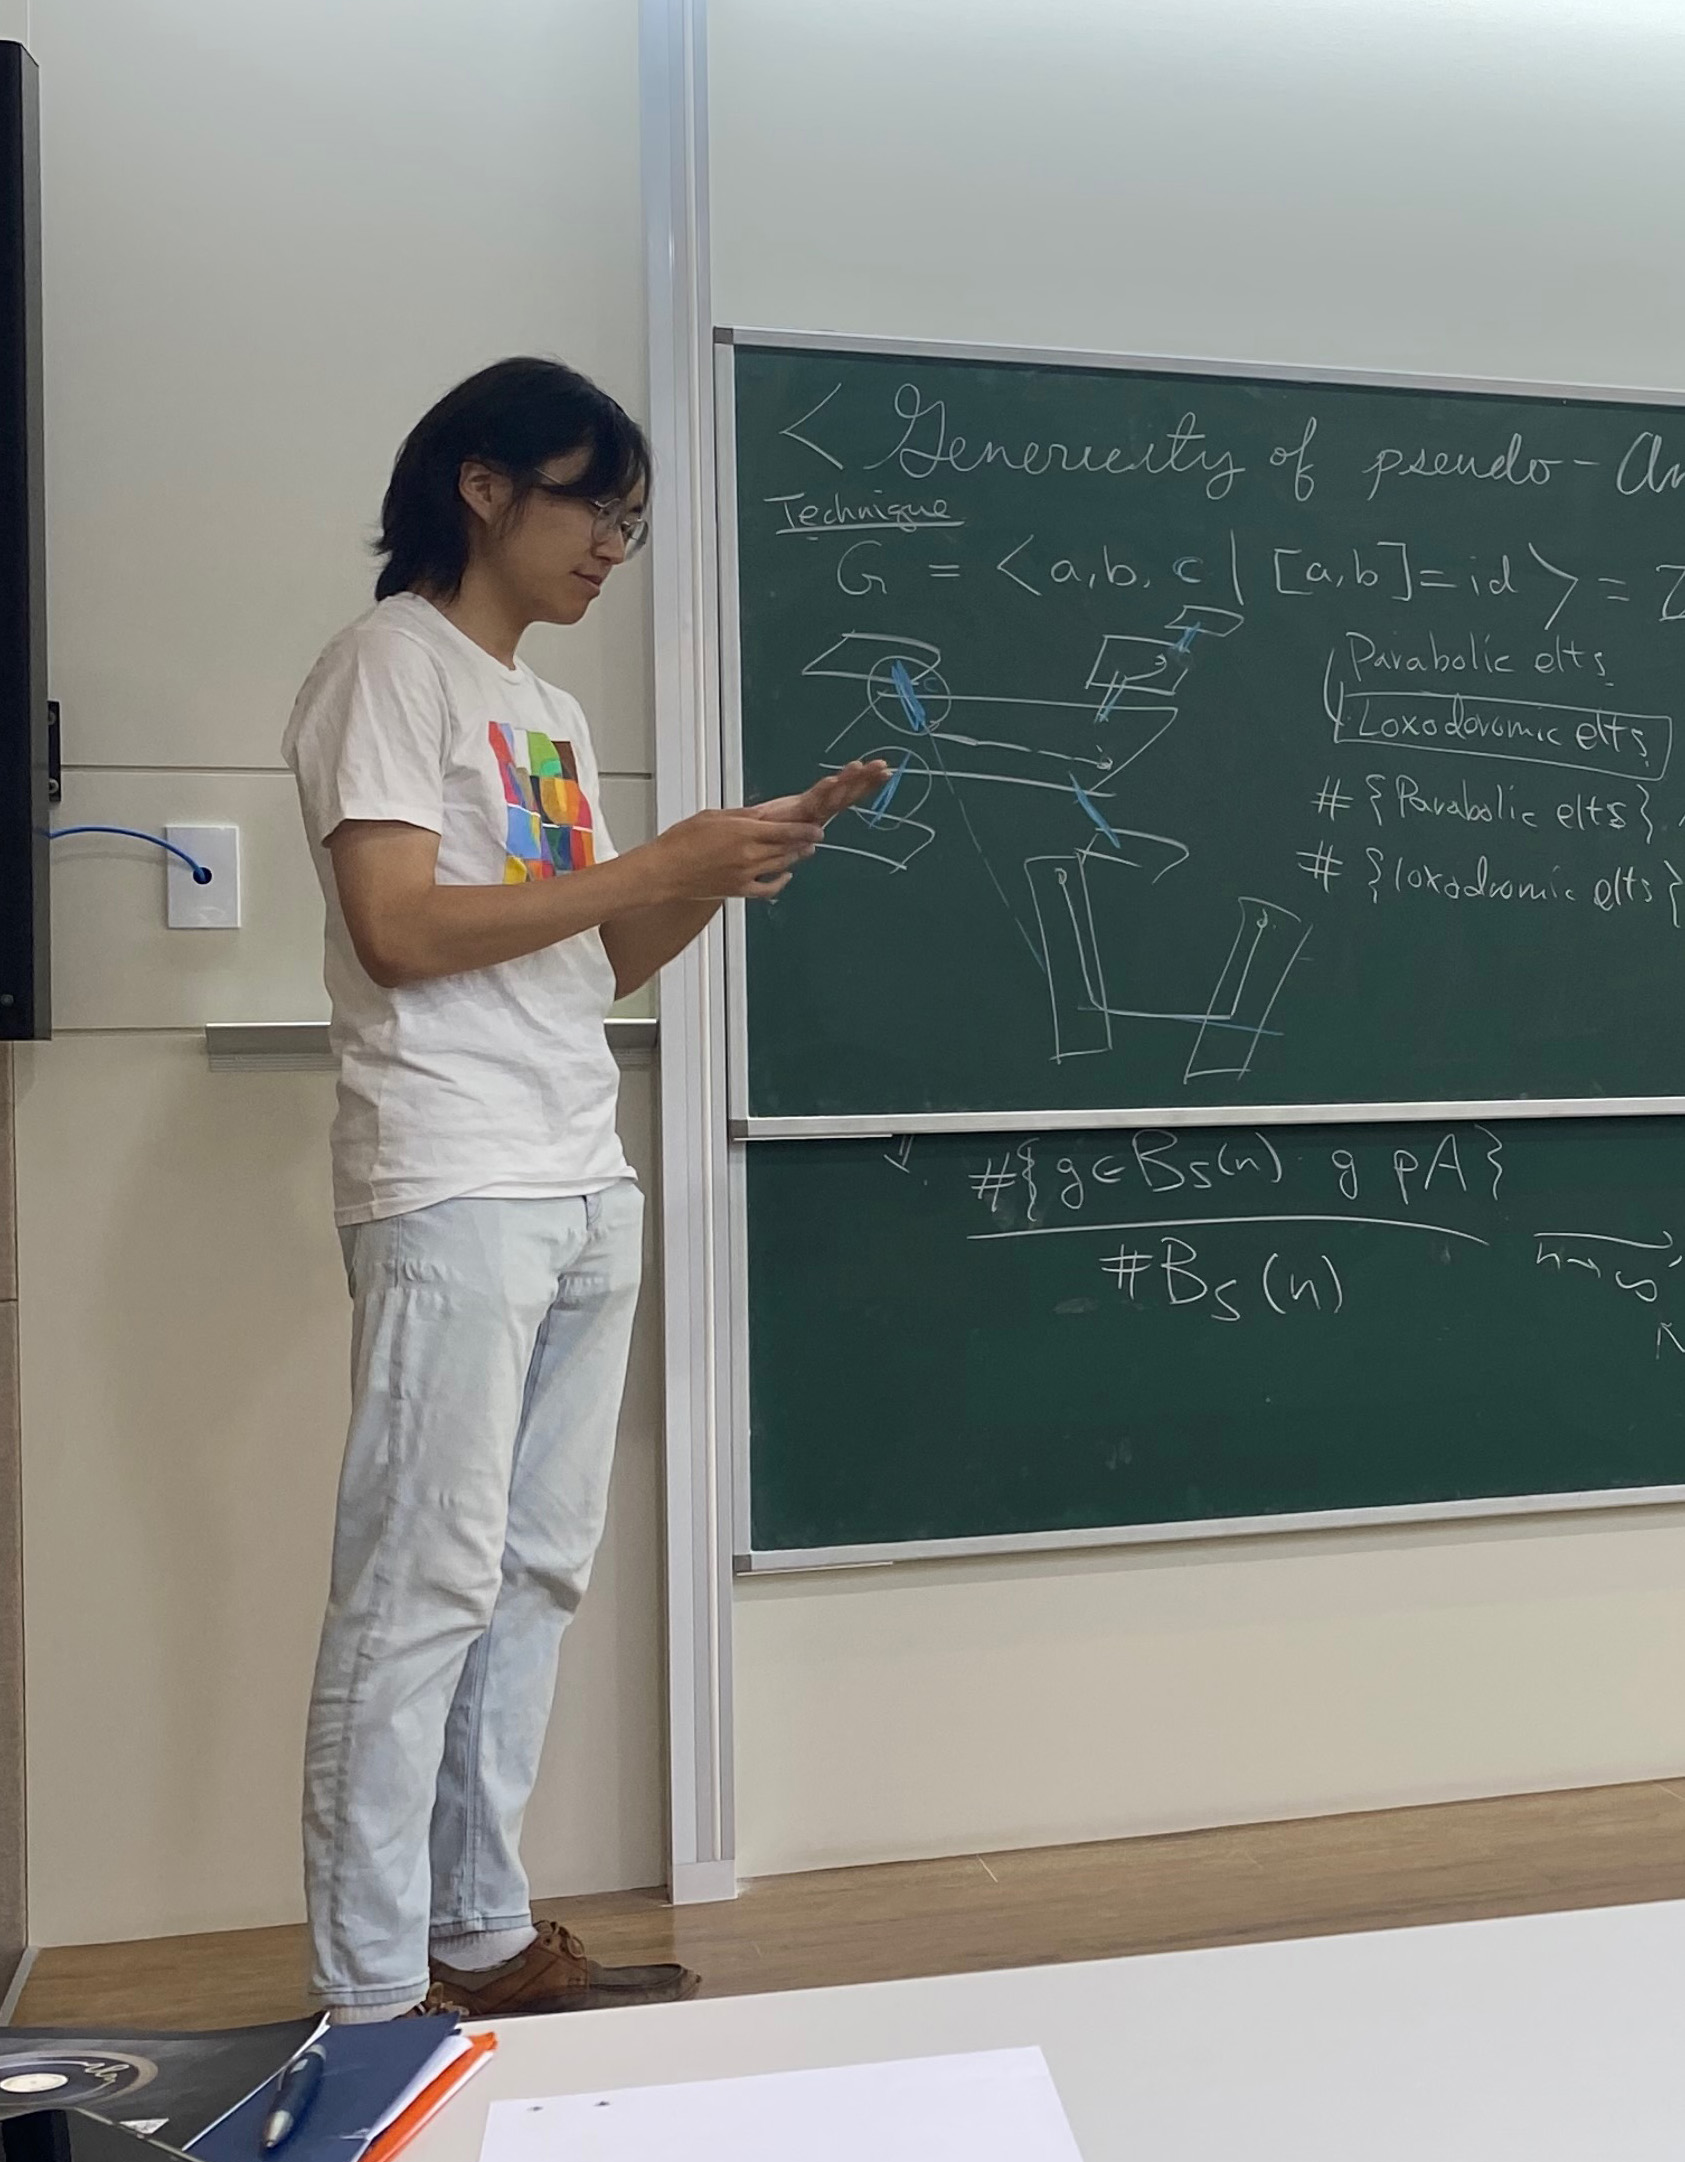 < Genericity of pseudo-An
Technique
G = <a,b, c | [a,b]=id> = Z
Parabolic elts
Loxodoromic elts
c
#{Parabolic elts}
#{loxodromic elts}
#{g∈B_S(n) g pA}
#B_S(n)
n→∞